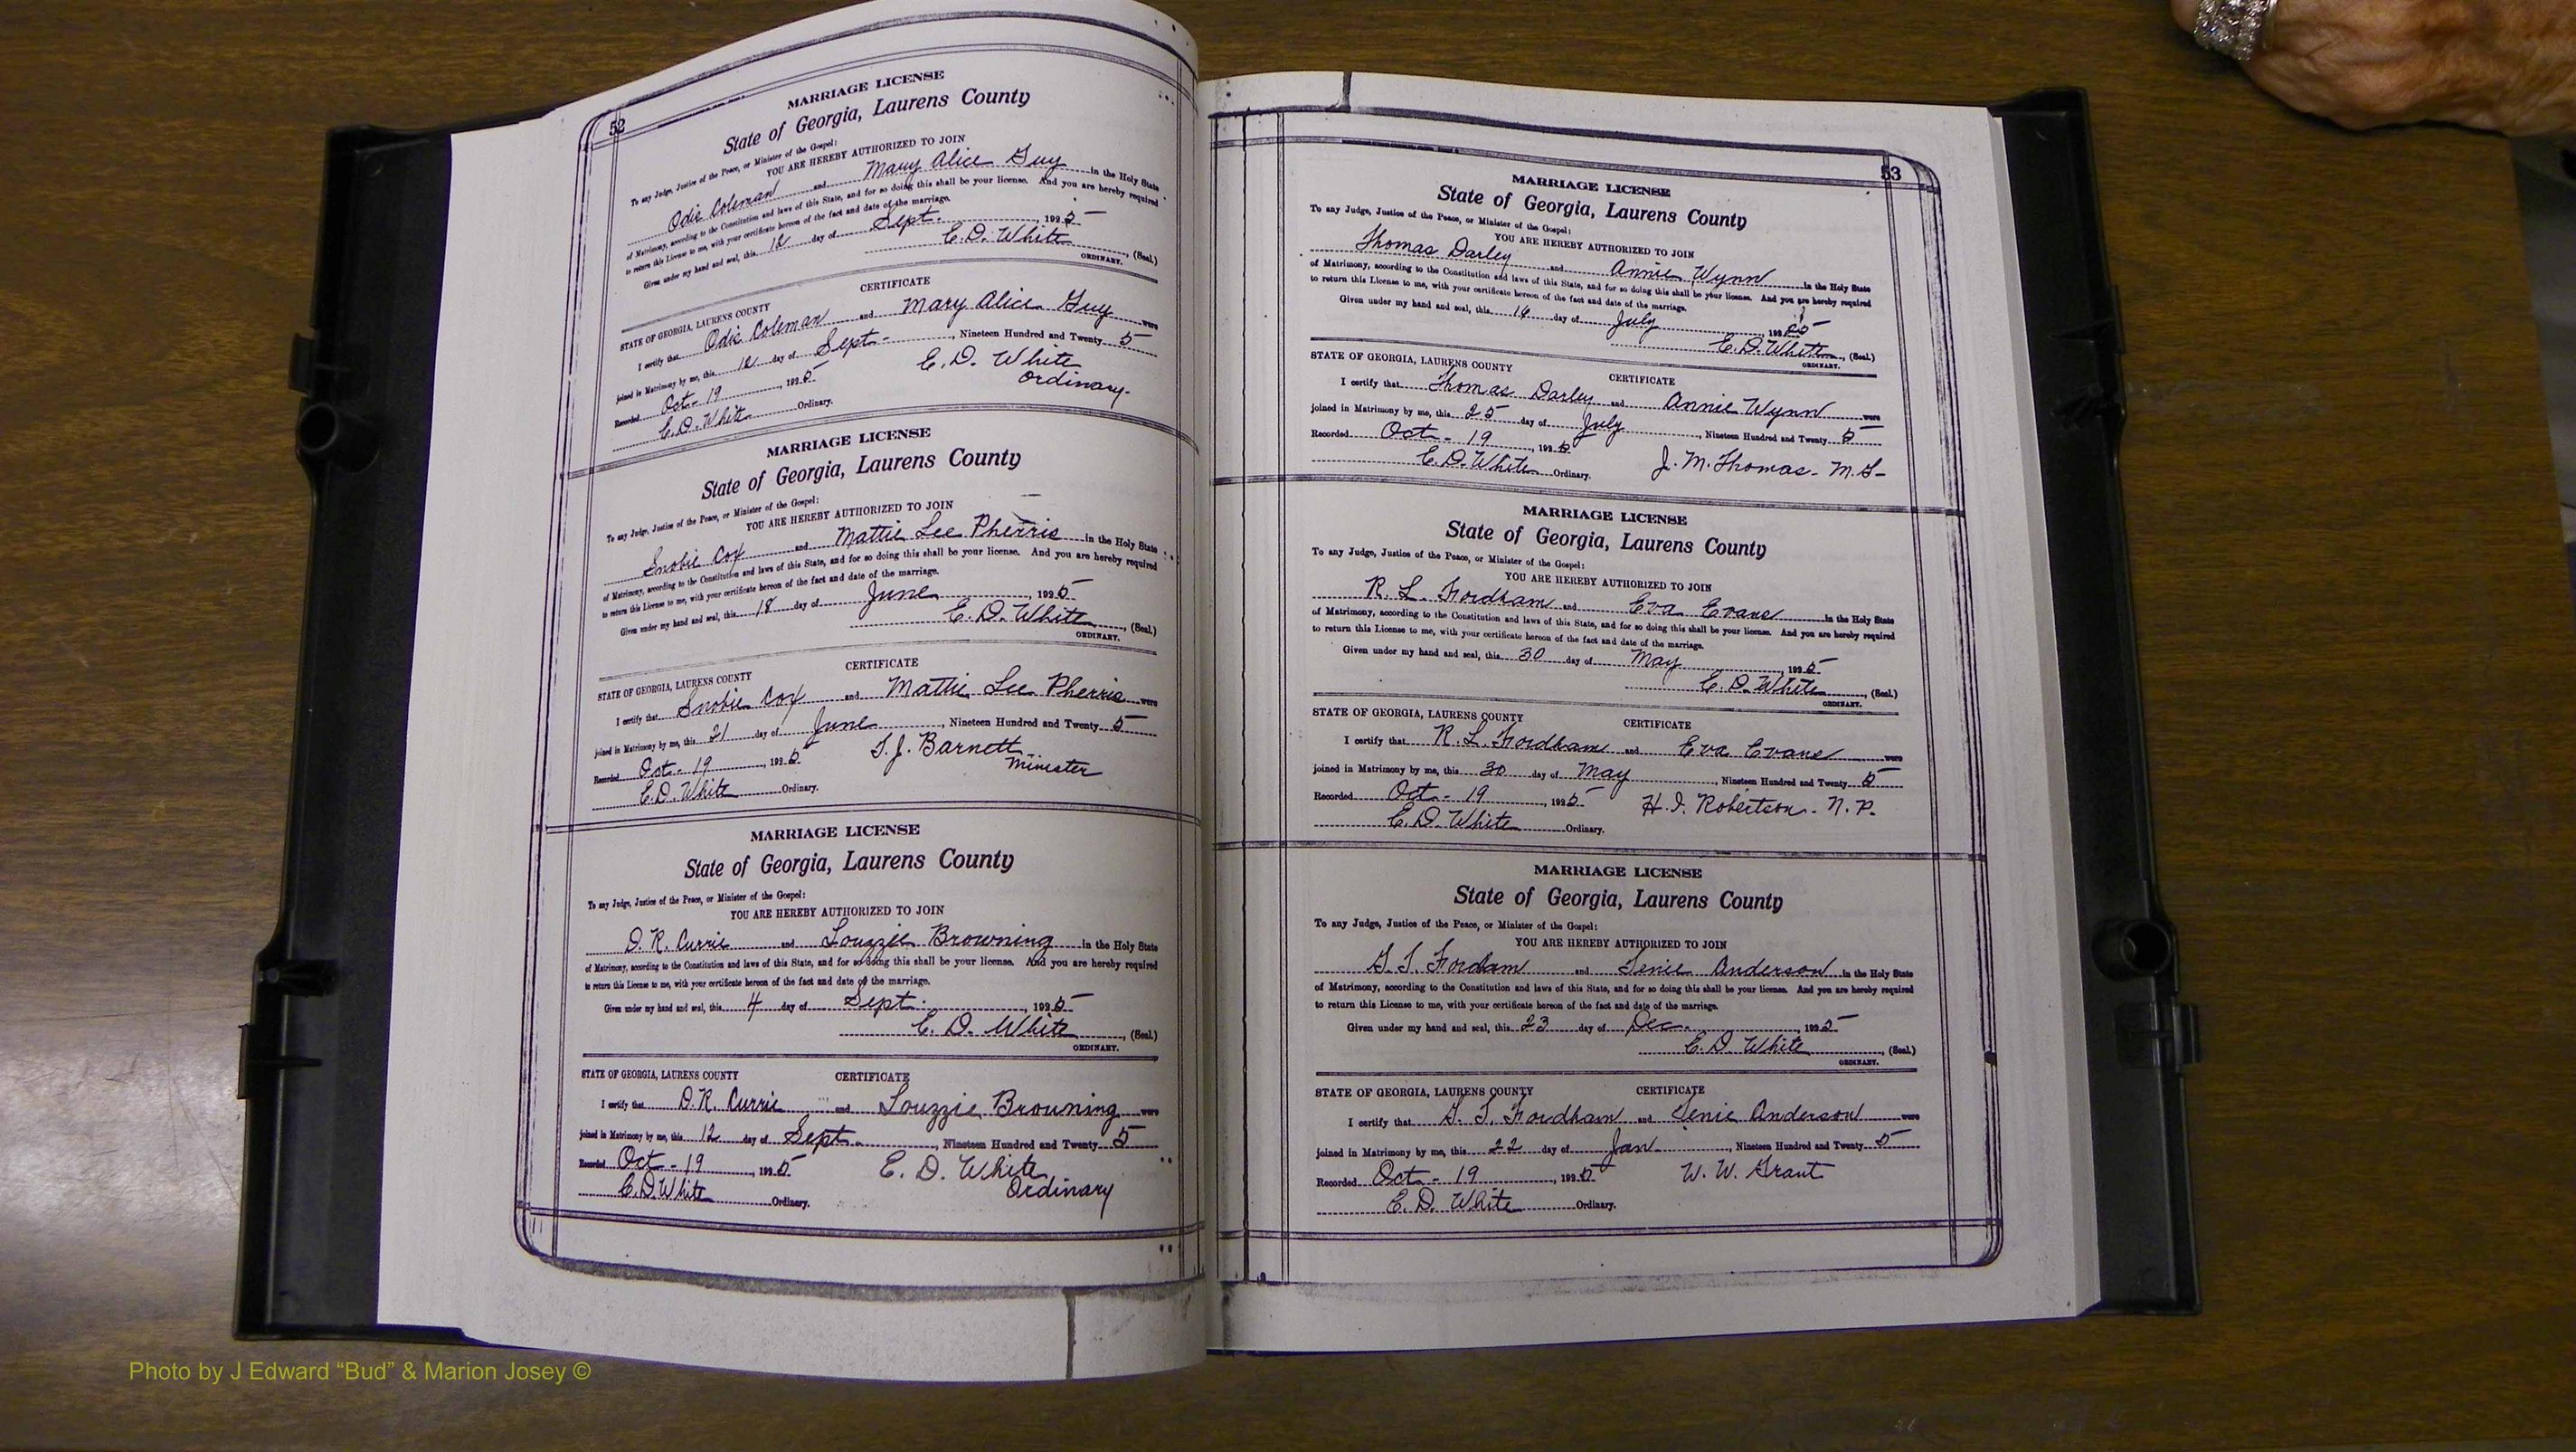 52
MARRIAGE LICENSE
State of Georgia, Laurens County
To any Judge, Justice of the Peace, or Minister of the Gospel:
YOU ARE HEREBY AUTHORIZED TO JOIN
Odie Coleman and Mary Alice Guy in the Holy State
of Matrimony, according to the Constitution and laws of this State, and for so doing this shall be your license. And you are hereby required
to return this License to me, with your certificate hereon of the fact and date of the marriage.
Given under my hand and seal, this 12 day of Sept. , 1925
E. D. White , (Seal.)
ORDINARY.
CERTIFICATE
STATE OF GEORGIA, LAURENS COUNTY
I certify that Odie Coleman and Mary Alice Guy were
joined in Matrimony by me, this 12 day of Sept- , Nineteen Hundred and Twenty 5
Recorded Oct- 19 , 1925 E. D. White
E. D. White Ordinary. Ordinary-
MARRIAGE LICENSE
State of Georgia, Laurens County
To any Judge, Justice of the Peace, or Minister of the Gospel:
YOU ARE HEREBY AUTHORIZED TO JOIN
Snobie Cox and Mattie Lee Pherris in the Holy State
of Matrimony, according to the Constitution and laws of this State, and for so doing this shall be your license. And you are hereby required
to return this License to me, with your certificate hereon of the fact and date of the marriage.
Given under my hand and seal, this 18 day of June , 1925
E. D. White , (Seal.)
ORDINARY.
CERTIFICATE
STATE OF GEORGIA, LAURENS COUNTY
I certify that Snobie Cox and Mattie Lee Pherris were
joined in Matrimony by me, this 21 day of June , Nineteen Hundred and Twenty 5
Recorded Oct- 19 , 1925 S. J. Barnett
E. D. White Ordinary. Minister
MARRIAGE LICENSE
State of Georgia, Laurens County
To any Judge, Justice of the Peace, or Minister of the Gospel:
YOU ARE HEREBY AUTHORIZED TO JOIN
D. R. Currie and Louzzie Browning in the Holy State
of Matrimony, according to the Constitution and laws of this State, and for so doing this shall be your license. And you are hereby required
to return this License to me, with your certificate hereon of the fact and date of the marriage.
Given under my hand and seal, this 4 day of Sept. , 1925
E. D. White , (Seal.)
ORDINARY.
STATE OF GEORGIA, LAURENS COUNTY CERTIFICATE
I certify that D. R. Currie and Louzzie Browning were
joined in Matrimony by me, this 12 day of Sept. , Nineteen Hundred and Twenty 5
Recorded Oct - 19 , 1925 E. D. White
E. D. White Ordinary. Ordinary
53
MARRIAGE LICENSE
State of Georgia, Laurens County
To any Judge, Justice of the Peace, or Minister of the Gospel:
YOU ARE HEREBY AUTHORIZED TO JOIN
Thomas Darley and Annie Wynn in the Holy State
of Matrimony, according to the Constitution and laws of this State, and for so doing this shall be your license. And you are hereby required
to return this License to me, with your certificate hereon of the fact and date of the marriage.
Given under my hand and seal, this day of July , 1925
E. D. White , (Seal.)
ORDINARY.
STATE OF GEORGIA, LAURENS COUNTY CERTIFICATE
I certify that Thomas Darley and Annie Wynn were
joined in Matrimony by me, this 25 day of July , Nineteen Hundred and Twenty 5
Recorded Oct - 19 , 1925
E. D. White Ordinary. J. M. Thomas - M. G-
MARRIAGE LICENSE
State of Georgia, Laurens County
To any Judge, Justice of the Peace, or Minister of the Gospel:
YOU ARE HEREBY AUTHORIZED TO JOIN
R. L. Fordham and Eva Evans in the Holy State
of Matrimony, according to the Constitution and laws of this State, and for so doing this shall be your license. And you are hereby required
to return this License to me, with your certificate hereon of the fact and date of the marriage.
Given under my hand and seal, this 30 day of May , 1925
E. D. White , (Seal.)
ORDINARY.
STATE OF GEORGIA, LAURENS COUNTY CERTIFICATE
I certify that R. L. Fordham and Eva Evans were
joined in Matrimony by me, this 30 day of May , Nineteen Hundred and Twenty 5
Recorded Oct - 19 , 1925 H. I. Robertson - N. P.
E. D. White Ordinary.
MARRIAGE LICENSE
State of Georgia, Laurens County
To any Judge, Justice of the Peace, or Minister of the Gospel:
YOU ARE HEREBY AUTHORIZED TO JOIN
Fordam and Anderson in the Holy State
of Matrimony, according to the Constitution and laws of this State, and for so doing this shall be your license. And you are hereby required
to return this License to me, with your certificate hereon of the fact and date of the marriage.
Given under my hand and seal, this 23 day of Dec. , 1925
E. D. White , (Seal.)
ORDINARY.
STATE OF GEORGIA, LAURENS COUNTY CERTIFICATE
I certify that Fordham and Anderson were
joined in Matrimony by me, this 22 day of Jan , Nineteen Hundred and Twenty 5
Recorded Oct - 19 , 1925 W. W. Grant
E. D. White Ordinary.
Photo by J Edward “Bud” & Marion Josey ©